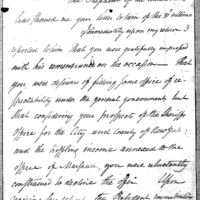 have showed me your letter to him of the 3d ultimo
Immediately upon my return I
reported to him that you were gratefully impressed
with his remembrance on the occasion that
you were desirous of filling some office of re-
spectability under the general government but
that considering your prospects of the Sheriffs
office for the City and County of New York
and the trifling income annexed to the
office of Marshall, you were reluctantly
constrained to decline the offer. Upon
the President immediately